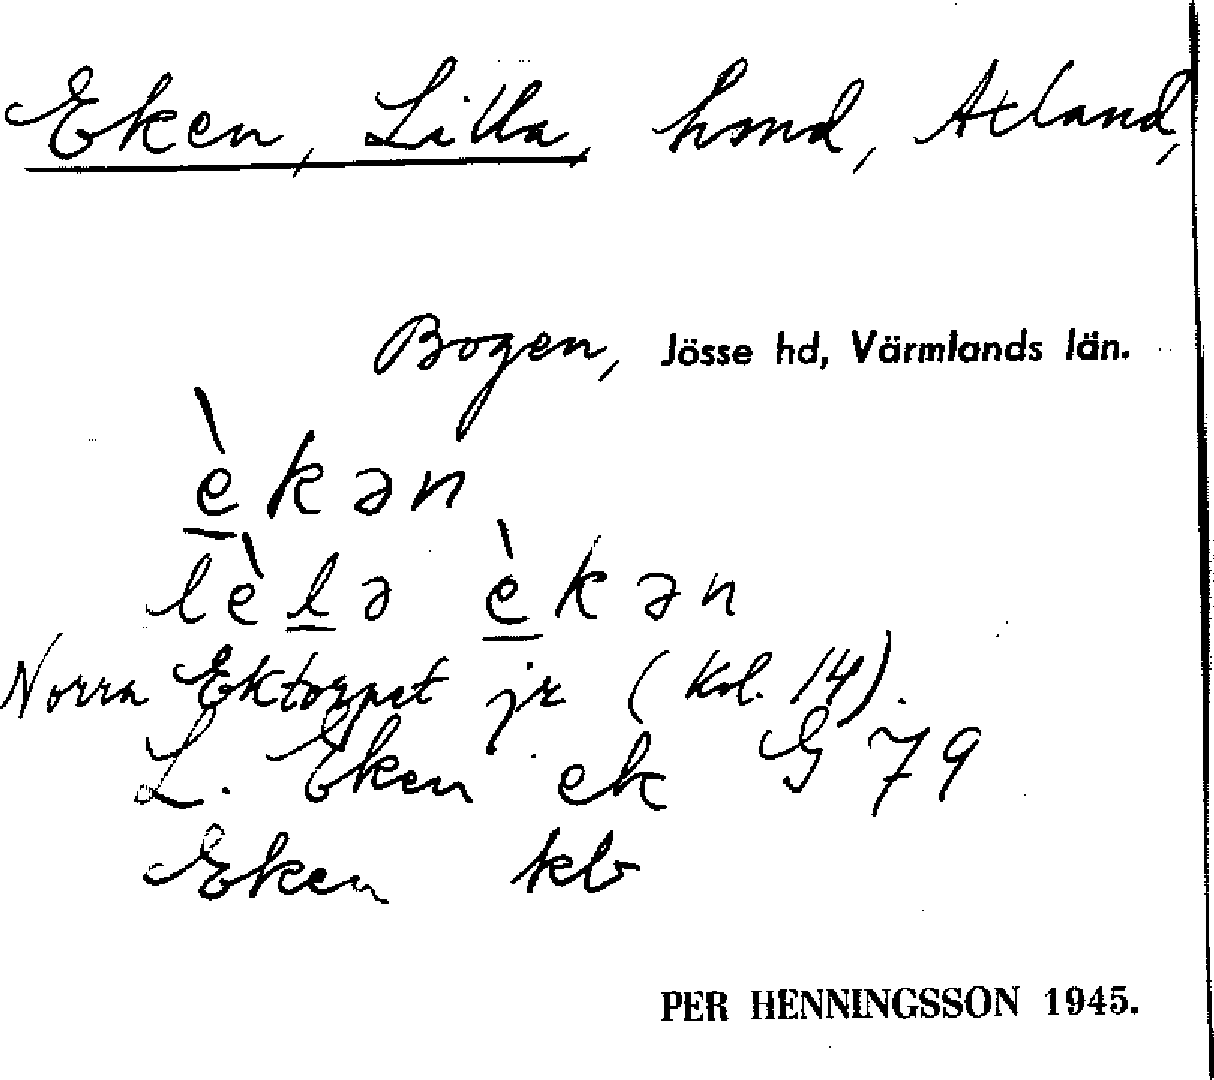 Eken, Lilla, hmd, Atland,
Bogen, Jösse hd, Värmlands län.
è̱kən
lèḻə è̱kən
Norra Ektorpet jr (kol. 14).
L. Eken ek G 79
Eken kb
PER HENNINGSSON 1945.